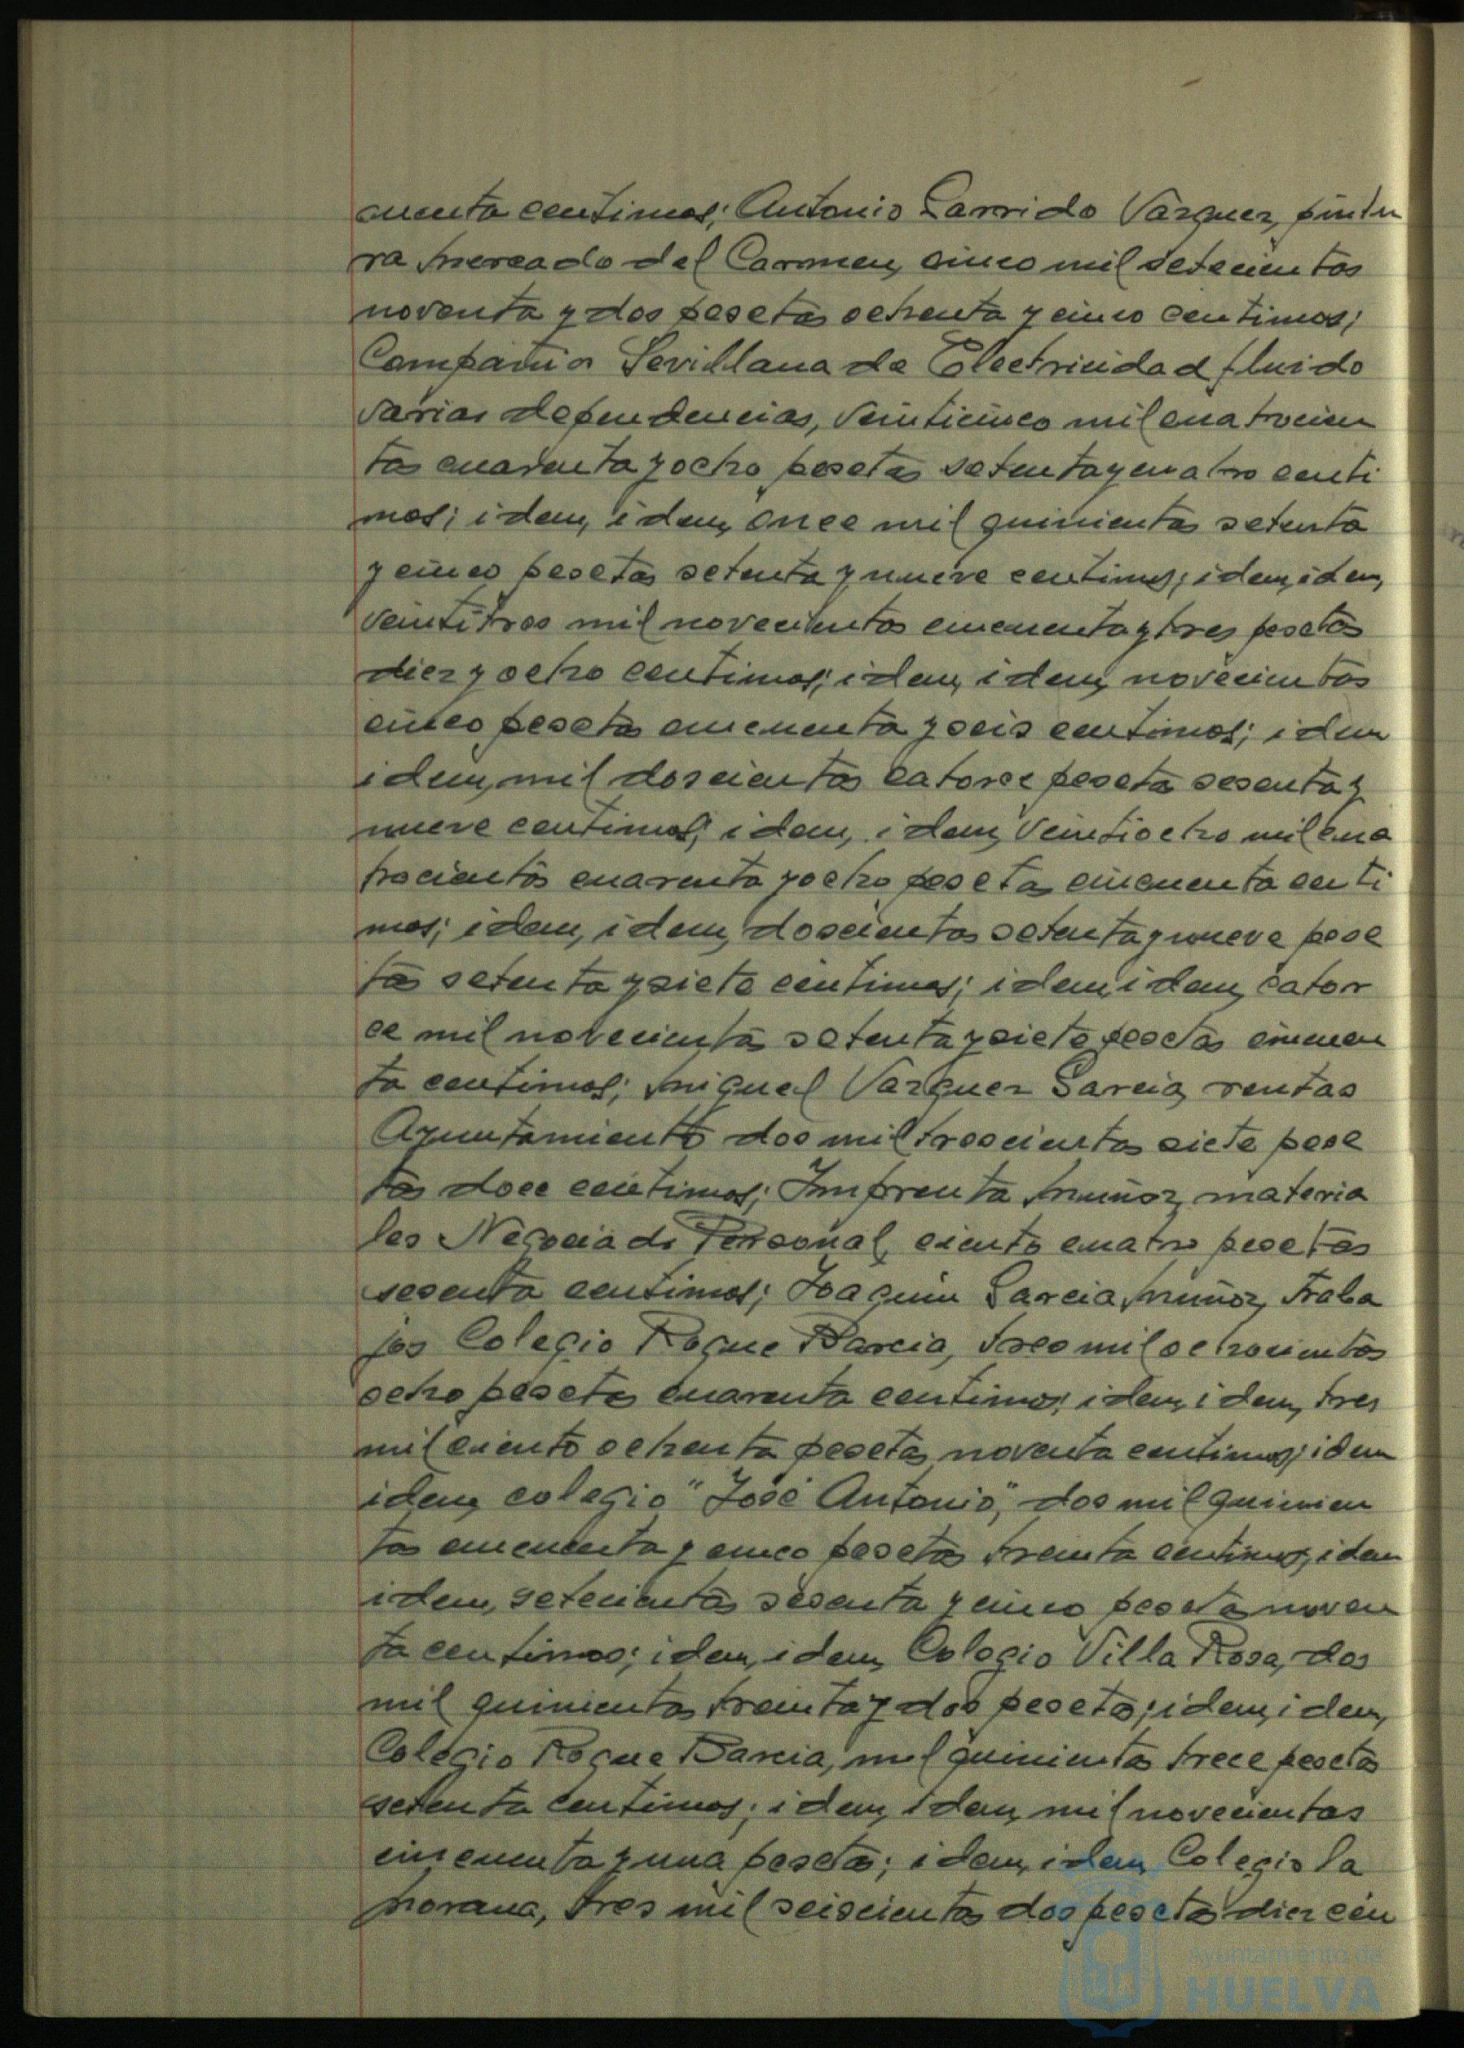 cuenta centimos; Antonio Garrido Vázquez, pintu
ra Mercado del Carmen, cinco mil setecientas
noventa y dos pesetas ochenta y cinco centimos;
Compañia Sevillana de Electricidad fluido
varias dependencias, veinticinco mil cuatrocien
tas cuarenta y ocho pesetas setenta y cuatro centi
mos; idem, idem, once mil quinientas setenta
y cinco pesetas setenta y nueve centimos; idem, idem,
veintitres mil novecientas cincuenta y tres pesetas
diez y ocho centimos; idem, idem, novecientas
cinco pesetas cincuenta y seis centimos; idem
idem, mil doscientas catorce pesetas sesenta y
nueve centimos; idem, idem, veintiocho mil cua
trocientas cuarenta y ocho pesetas cincuenta centi
mos; idem, idem, doscientas setenta y nueve pese
tas setenta y siete centimos; idem, idem, cator
ce mil novecientas setenta y siete pesetas cincuen
ta centimos; Miguel Vazquez Garcia, rentas
Ayuntamiento dos mil trescientas siete pese
tas doce centimos; Imprenta Muñoz, materia
les Negociado Personal, ciento cuatro pesetas
sesenta centimos; Joaquin Garcia Muñoz, traba
jos Colegio Roque Barcia, tres mil ochocientas
ocho pesetas cuarenta centimos; idem, idem, tres
mil ciento ochenta pesetas noventa centimos; idem
idem, colegio "José Antonio", dos mil quinien
tas cincuenta y cinco pesetas treinta centimos; idem
idem, setecientas sesenta y cinco pesetas noven
ta centimos; idem, idem, Colegio Villa Rosa, dos
mil quinientas treinta y dos pesetas; idem, idem,
Colegio Roque Barcia, mil quinientas trece pesetas
setenta centimos; idem, idem, mil novecientas
cincuenta y una pesetas; idem, idem, Colegio la
Morana, tres mil seiscientas dos pesetas diez cén
Ayuntamiento de
HUELVA